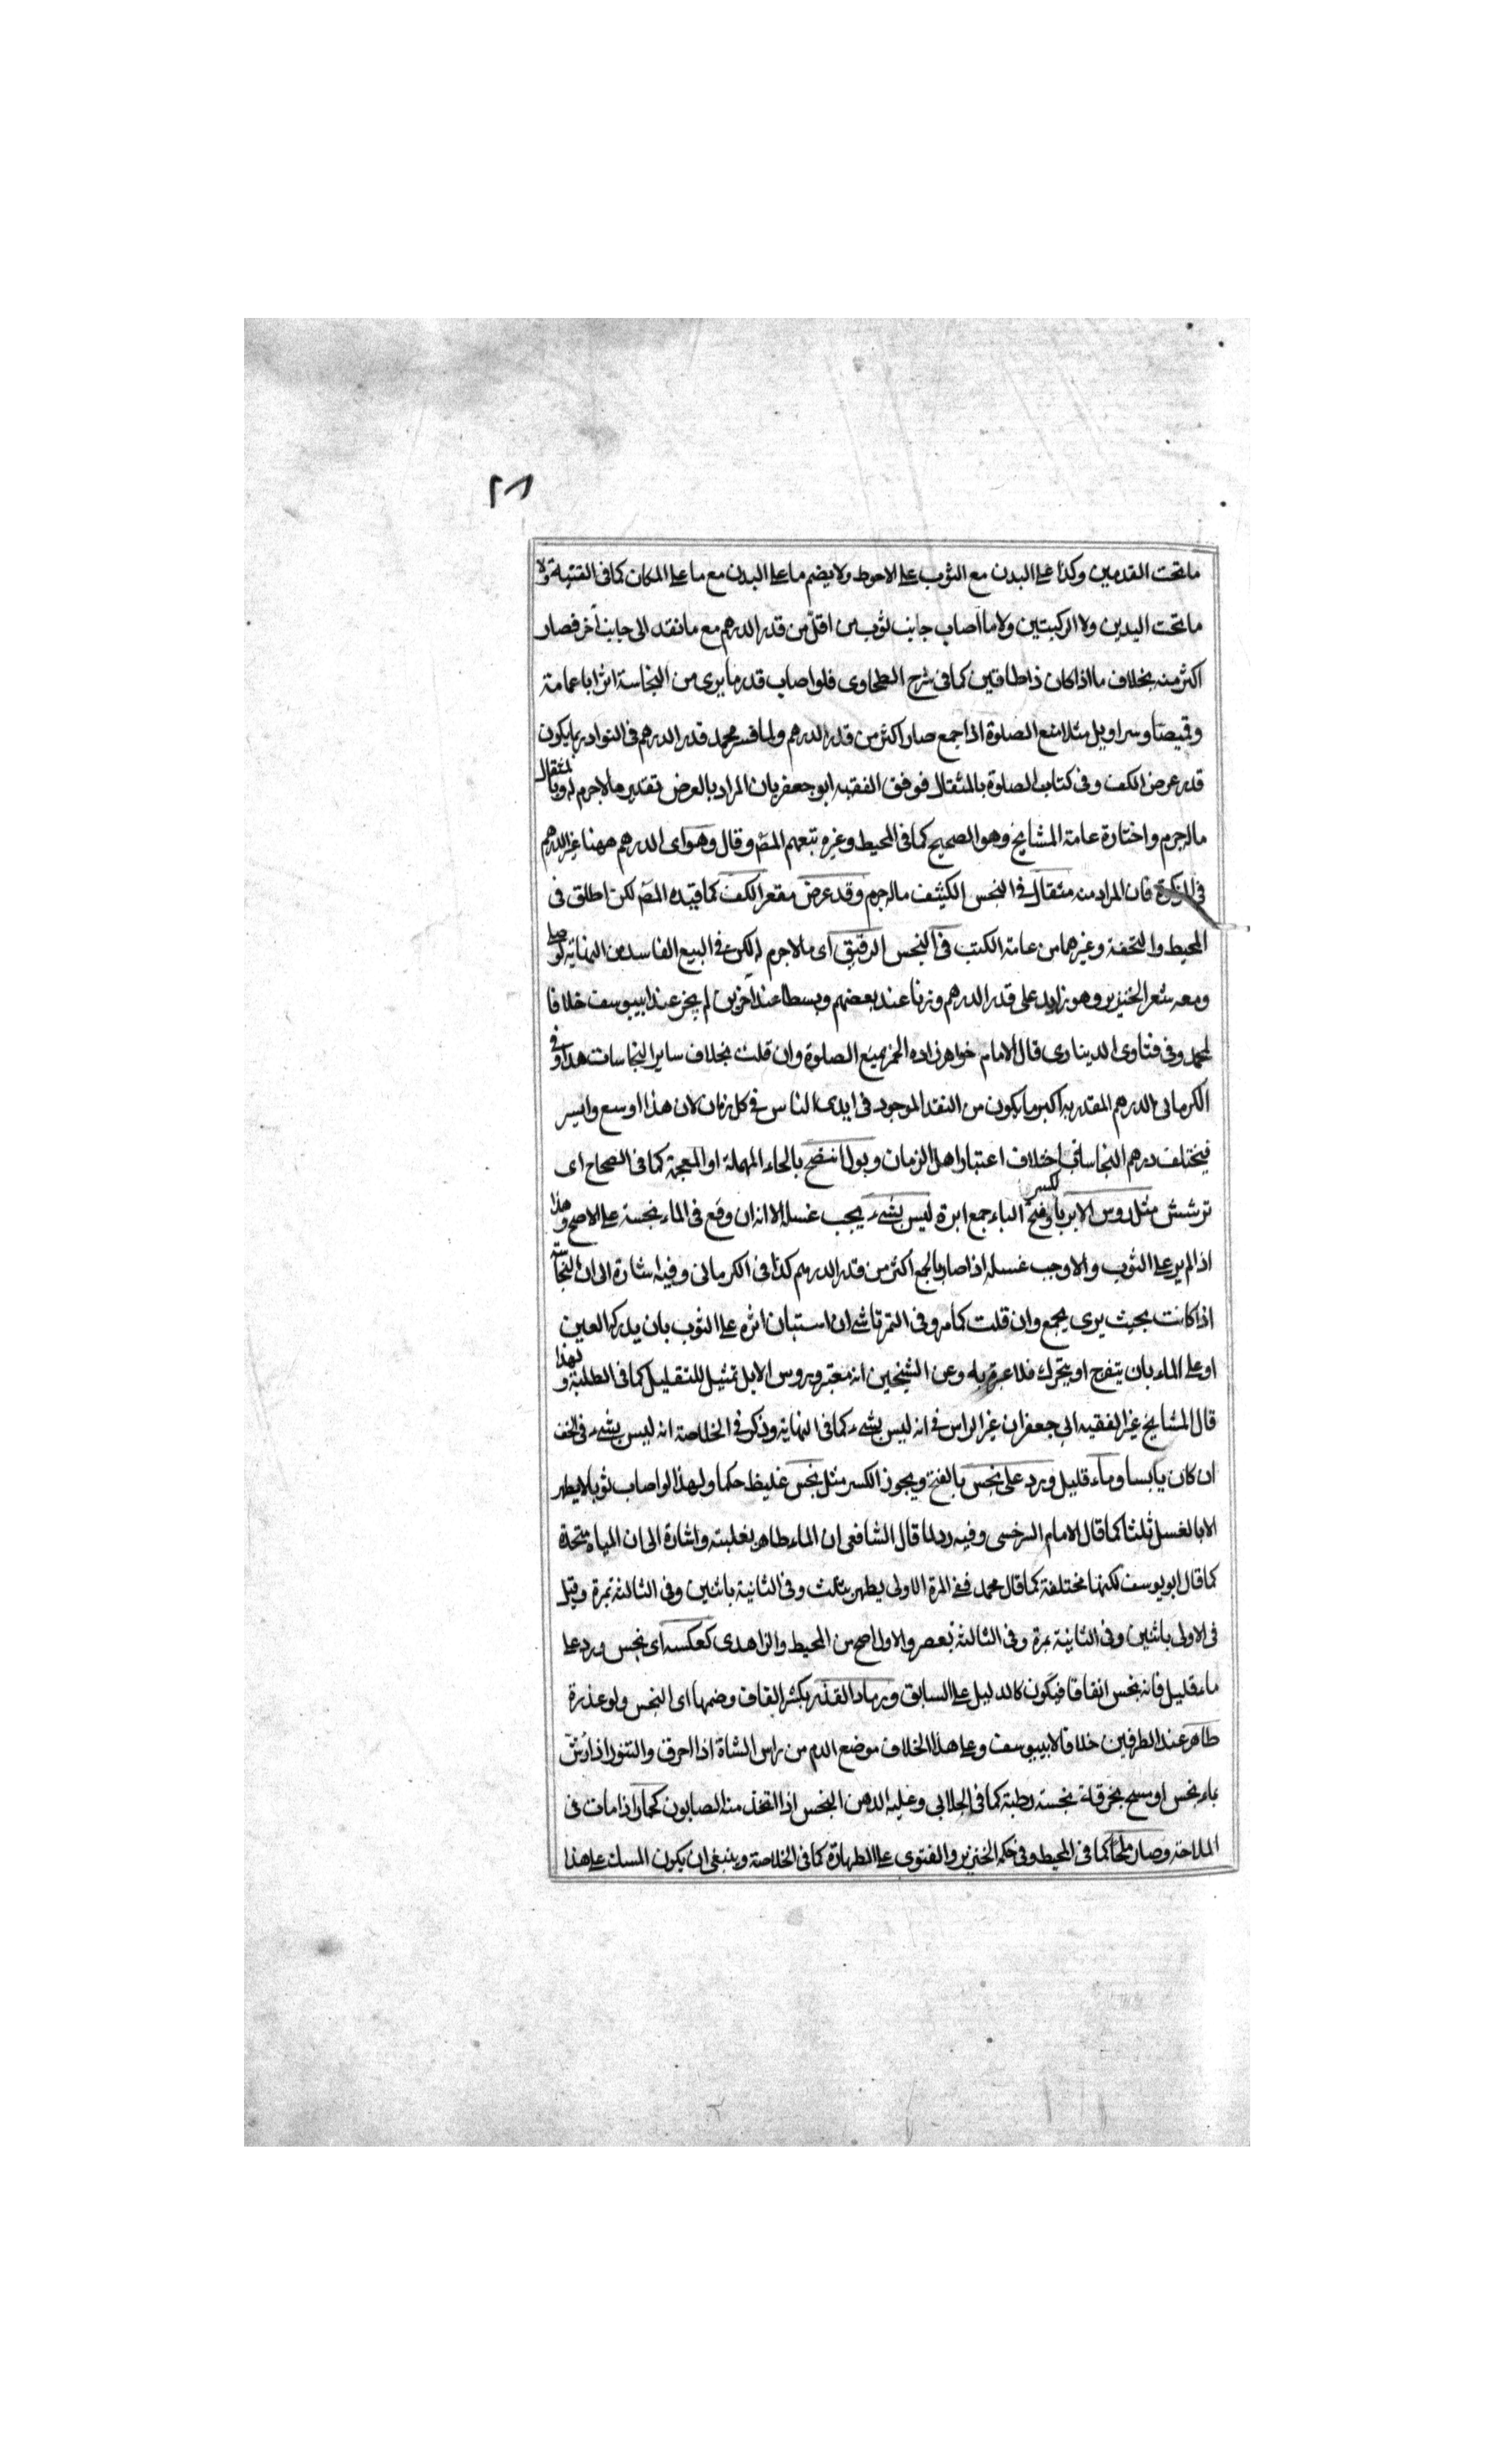 ٢٨
ما تحت القدمين وكذا على البدن مع الثوب على الاحوط ولا يضم ما على البدن مع ما على المكان كما فى القنية ولا
ما تحت اليدين ولا الركبتين ولا ما اصاب جانب ثوب من اقل من قدر الدرهم مع ما نفذ الى جانب آخر فصار
اكثر منه بخلاف ما اذا كان ذا طاقين كما فى شرح الطحاوى فلو اصاب قدر ما يرى من النجاسة اثرا با عمامة
وقميصا وسراويل مثلا منع الصلوة اذا جمع صار اكثر من قدر الدرهم ولما فسر محمد قدر الدرهم فى النوادر بما يكون
قدر عرض الكف وفى كتاب الصلوة بالمثقال فوفق الفقيه ابو جعفر بان المراد بالعرض تقدير ما لا جرم له وبالمثقال
ماله جرم واختاره عامة المشايخ وهو الصحيح كما فى المحيط وغيره تبعهم المص وقال وهو اى الدرهم ههنا غير الدرهم
فى الزكوة فان المراد منه مثقال فى النجس الكثيف ماله جرم وقدر عرض مقعر الكف كما قيده المص لكن اطلق فى
المحيط والتحفة وغيرهما من عامة الكتب فى النجس الرقيق اى ما لا جرم له لكن فى البيع الفاسد من النهاية لو صلى
ومعه شعر الخنزير وهو زايد على قدر الدرهم وزنا عند بعضهم وبسطا عند آخرين لم يجز عند ابييوسف خلافا
لمحمد وفى فتاوى الدينارى قال الامام خواهر زاده الخمر يمنع الصلوة وان قلت بخلاف ساير النجاسات هذا وفى
الكرمانى الدرهم المقدر به اكبر ما يكون من النقد الموجود فى ايدى الناس فى كل زمان لان هذا اوسع وايسر
فيختلف درهم النجاسات باختلاف اعتبار اهل الزمان وبول انتضح بالحاء المهملة او المعجمة كما فى الصحاح اى
ترشش مثل رؤس الابر بالكسر وفتح الباء جمع ابرة ليس بشىء يجب غسله الا انه ان وقع فى الماء نجسه على الاصح وهذا
اذا لم ير على الثوب والا وجب غسله اذا صار بالجمع اكثر من قدر الدرهم كذا فى الكرمانى وفيه اشارة الى ان النجاسة
اذا كانت بحيث يرى يجمع وان قلت كما مر وفى التمرتاشى ان استبان اثره على الثوب بان يدركها العين
او على الماء بان يتفرج او يتحرك فلا عبرة به وعن الشيخين انه معتبر ورؤس الابل تمثيل للتقليل كما فى الطلبة ولهذا
قال المشايخ غير الفقيه ابى جعفر ان غير الراس فى انه ليس بشىء كما فى النهاية وذكر فى الخلاصة انه ليس بشىء فى الخف
ان كان يابسا وماء قليل ورد على نجس بالفتح ويجوز الكسر مثل نجس غليظ حكما ولهذا لو اصاب ثوبا لا يطهر
الا بالغسل ثلثا كما قال الامام السرخسى وفيه رد لما قال الشافعى ان الماء طاهر بغلبته واشارة الى ان المياه متحدة
كما قال ابو يوسف لكنها مختلفة كما قال محمد ففى المرة الاولى يطهر بثلث وفى الثانية باثنين وفى الثالثة بمرة وقيل
فى الاولى باثنين وفى الثانية بمرة وفى الثالثة بعصر والاول اصح من المحيط والزاهدى كعكسه اى نجس ورد على
ماء قليل فانه نجس اتفاقا فيكون كالدليل على السابق ورماد القذر بكسر القاف وضمها اى النجس ولو عذرة
طاهر عند الطرفين خلافا لابييوسف وعلى هذا الخلاف موضع الدم من راس الشاة اذا احرق والتنور اذا رش
بماء نجس او مسح بخرقة نجسة رطبة كما فى الجلابى وعليه الدهن النجس اذا اتخذ منه الصابون كحمار اذا مات فى
الملاحة وصار ملحا كما فى المحيط وفى حكمه الخنزير والفتوى على الطهارة كما فى الخلاصة وينبغى ان يكون المسك على هذا